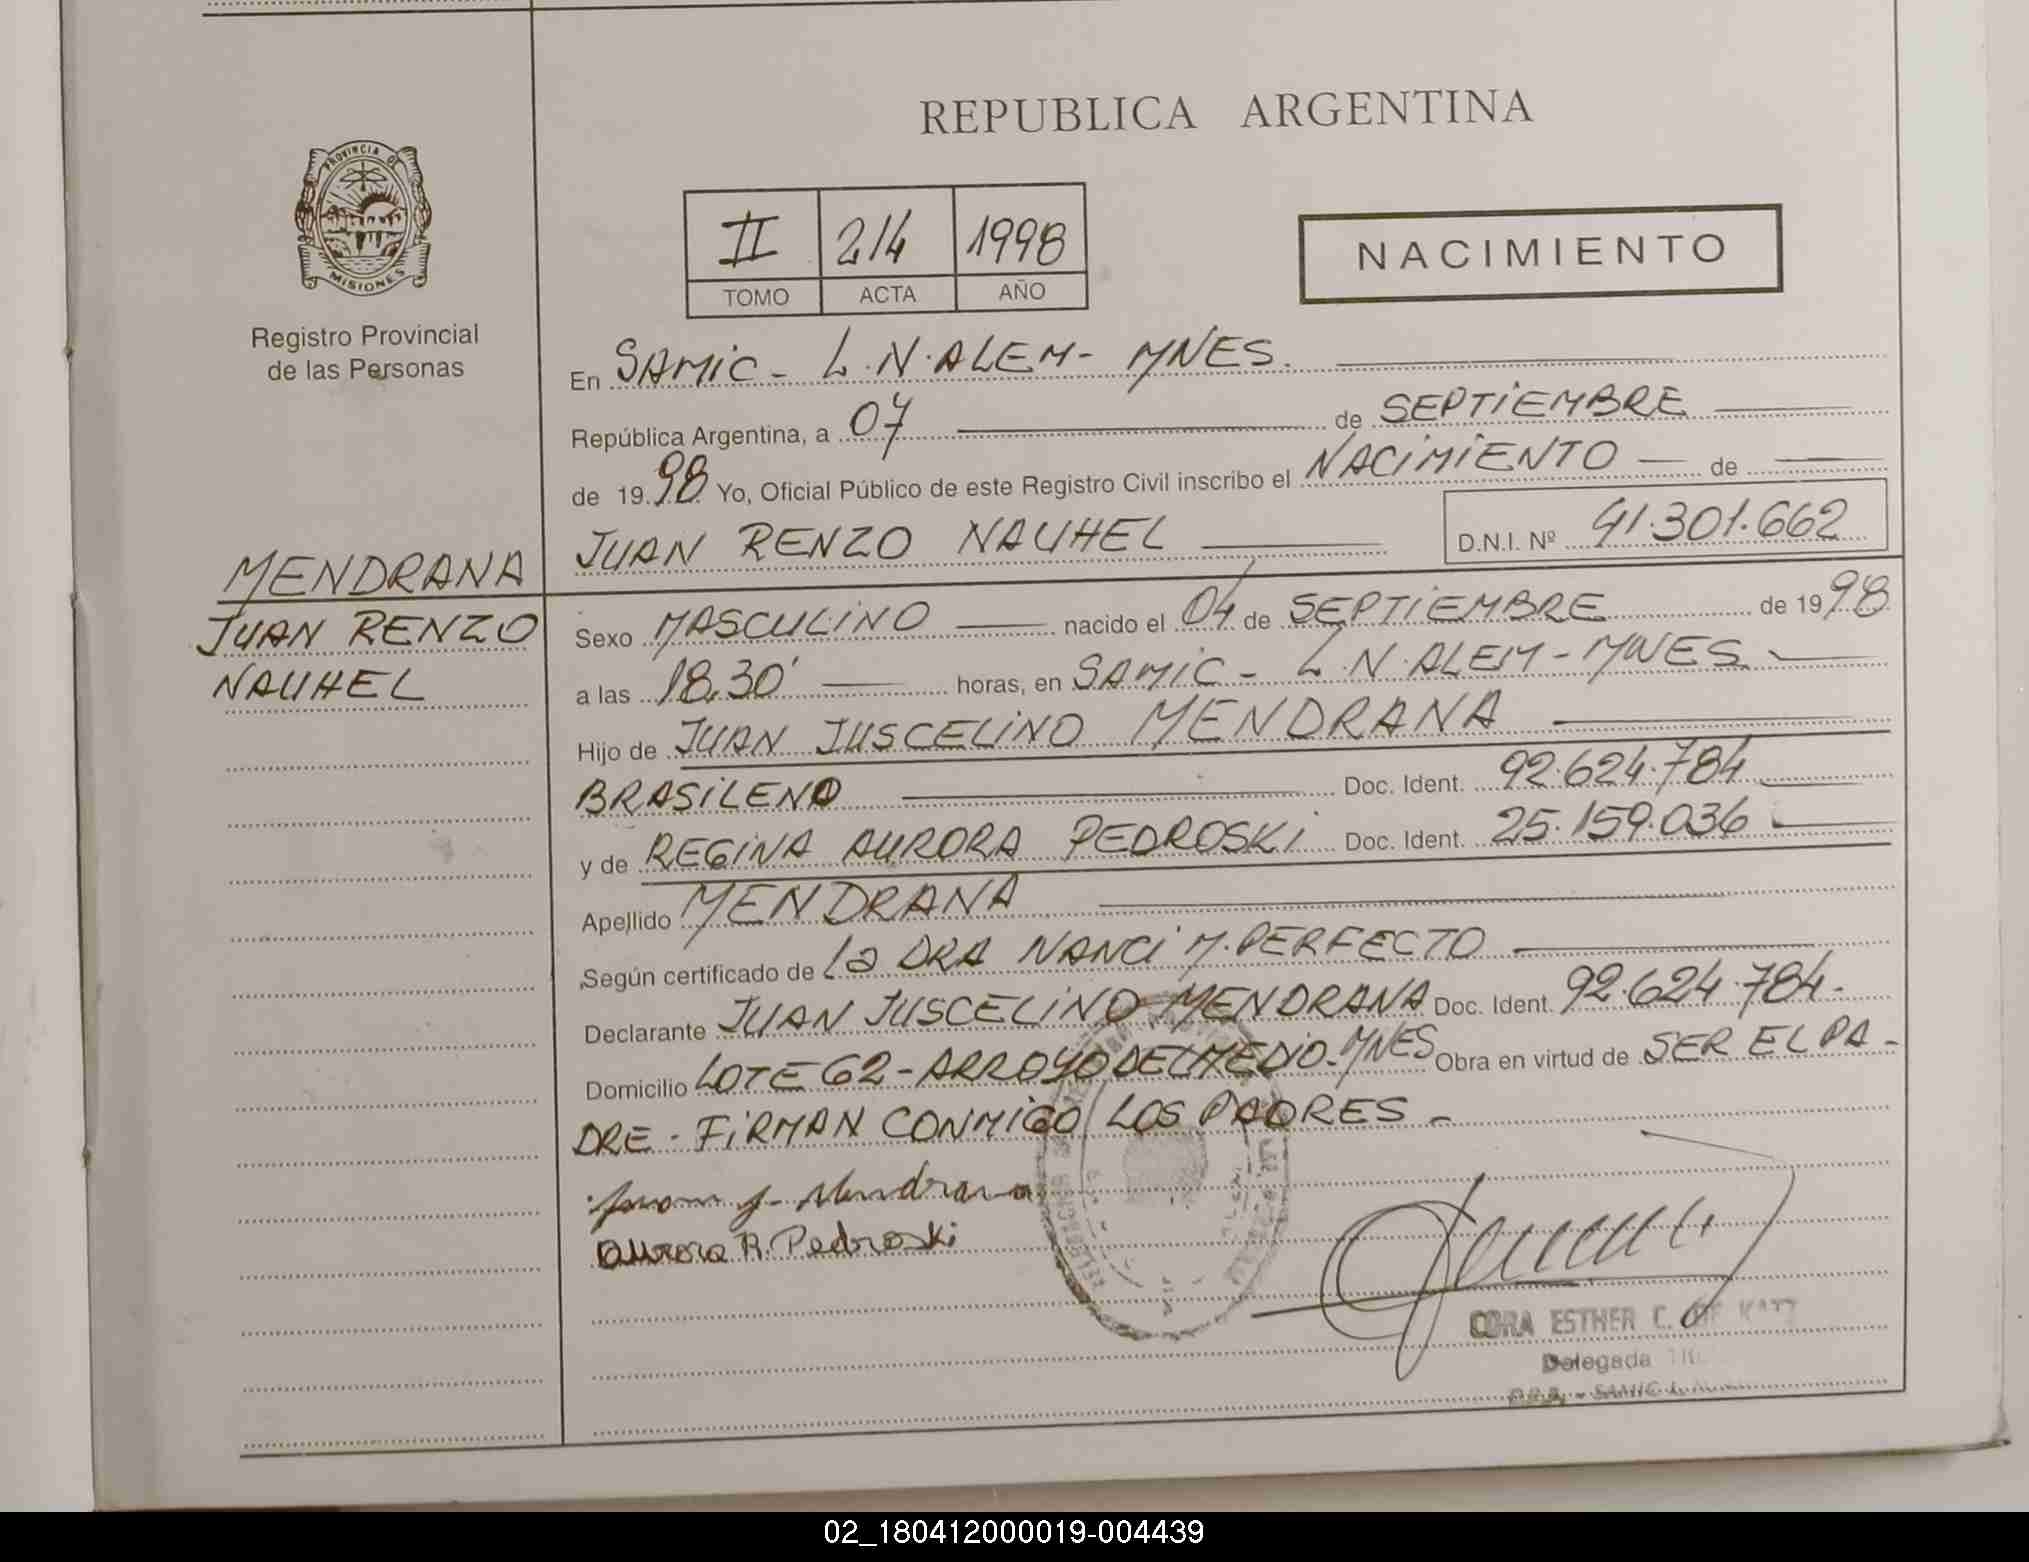 REPUBLICA ARGENTINA
PROVINCIA DE
MISIONES
Registro Provincial
de las Personas
II 214 1998
TOMO ACTA AÑO
NACIMIENTO
En SAMIC - L.N. ALEM - MNES.
República Argentina, a 07 de SEPTIEMBRE
de 1998 Yo, Oficial Público de este Registro Civil inscribo el NACIMIENTO de
JUAN RENZO NAUHEL D.N.I. Nº 41.301.662
MENDRANA
JUAN RENZO
NAUHEL
Sexo MASCULINO nacido el 04 de SEPTIEMBRE de 1998
a las 18,30' horas, en SAMIC - L.N. ALEM - MNES
Hijo de JUAN JUSCELINO MENDRANA
BRASILENO Doc. Ident. 92.624.784
y de REGINA AURORA PEDROSKI Doc. Ident. 25.159.036
Apellido MENDRANA
Según certificado de la DRA NANCI M. PERFECTO
Declarante JUAN JUSCELINO MENDRANA Doc. Ident. 92.624.784.
Domicilio LOTE 62 - ARROYO DEL MEDIO - MNES Obra en virtud de SER EL PA-
DRE - FIRMAN CONMIGO LOS PADRES -
Juan J. Mendrana
Aurora R. Pedroski
CORA ESTHER C. DE KATZ
Delegada
02_180412000019-004439